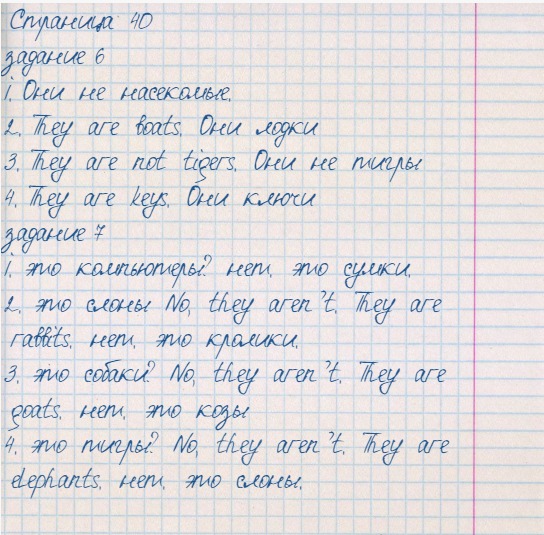 Страница 40
задание 6
1. Они не насекомые.
2. They are boats. Они лодки
3. They are not tigers. Они не тигры
4. They are keys. Они ключи
задание 7
1. это компьютеры? нет, это сумки.
2. это слоны No, they aren't. They are
rabbits, нет, это кролики.
3. это собаки? No, they aren't. They are
goats, нет, это козы
4. это тигры? No, they aren't. They are
elephants, нет, это слоны.